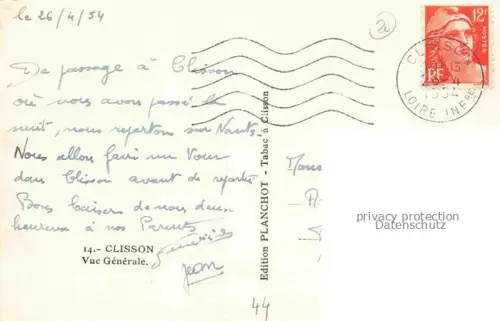 le 26/4/54
De passage à Clisson
où nous avons passé la
nuit, nous repartons sur Nantes.
Nous allons faire un tour
dans Clisson avant de repartir.
Bons baisers de nous deux
heureux à nos Parents
Jean
14.- CLISSON
Vue Générale.
Edition PLANCHOT - Tabac à Clisson
12F
RF
POSTES
CLISSON
1954
LOIRE INFRE
privacy protection
Datenschutz
44